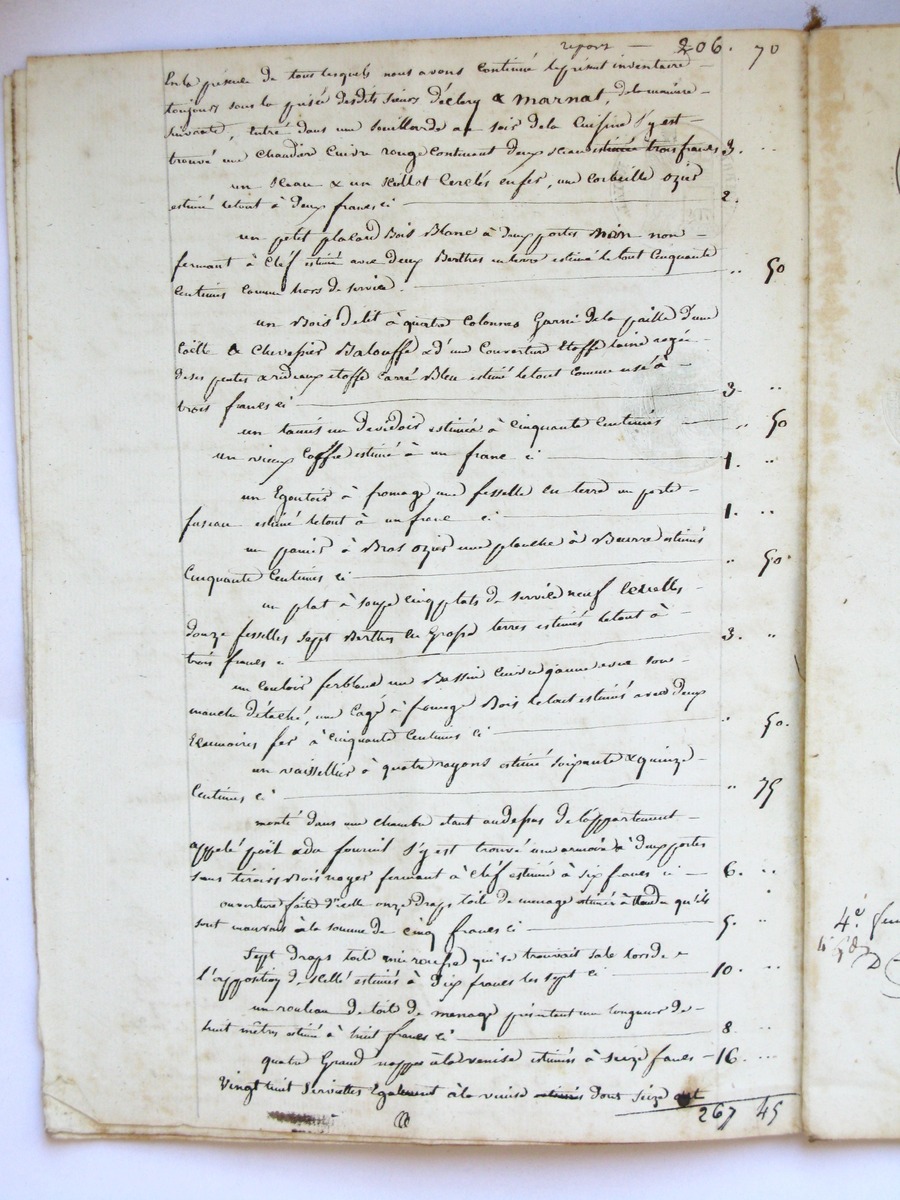 report — 206. 70
En la présence de tous lesquels nous avons continué le présent inventaire
toujours sous la prisée desdits sieurs d'éclary & marnat, de la manière
suivante, entré dans une souillarde au soir de la cuisine s'y est
trouvé une chaudière cuivre rouge contenant deux sceaux estimée trois francs 3. ..
un sceau & un seillot cerclés en fer, une corbeille ozier
estimé le tout à deux francs ci 2.
un petit placard Bois Blanc à deux portes non
fermant à cléf estimé avec deux Berthes en terre estimé le tout cinquante
centimes comme hors de service. .. 50
un Bois de lit à quatre colonnes garni de la paille d'une
coëtte & chevessier Balouffe & d'une couverture étoffe laine rayée
de ses pentes & rideaux étoffe carré Bleu estimé le tout comme usé à
trois francs ci 3. ..
un tamis un devidoir estimés à cinquante centimes .. 50
un vieux coffre estimé à un franc ci 1. ..
un Egoutoir à fromage une fesselle en terre un porte
fuseau estimé le tout à un franc ci 1. ..
un panier à Bras ozier une planche à Beurre estimés
cinquante centimes ci .. 50
un plat à soupe cinq plats de service neuf écuelles
douze fesselles sept Berthes en grosse terres estimés le tout à
trois francs ci 3. ..
un couloir ferblanc un Bassin cuivre jaune avec son
manche détaché, une cage à fromage Bois le tout estimés avec deux
Ecumoires fer à cinquante centimes ci .. 50.
un vaissellier à quatre rayons estimé soixante & quinze
centimes ci .. 75
monté dans une chambre étant au dessus de l'appartement
appelé poêt & du fournil s'y est trouvé une armoire à deux portes
sans tiroirs Bois noyer fermant à cléf estimée à six francs ci 6. ..
ouverture faite d'icelle onze draps toile de menage estimés attendu qu'ils
sont mauvais à la somme de cinq francs ci 5. ..
Sept draps toile mi rousse qui se trouvait sale lors de
l'apposition de scellé estimés à dix francs les sept ci 10. ..
un rouleau de toile de menage présentant une longueur de
huit mètres estimé à huit francs ci 8 ..
quatre Grand nappes à la venise estimées à seize francs 16. ..
Vingt huit serviettes Egalement à la venise estimés dont seize
267 45
4.e